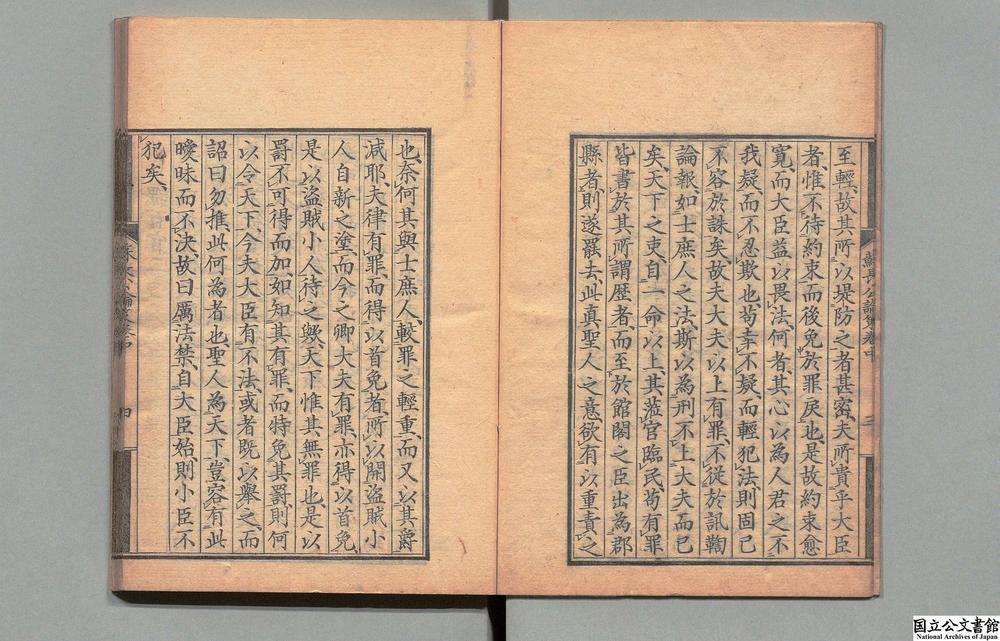 至輕、故其所以堤防之者甚密、夫所貴乎大臣
者、惟不待約束而後免於罪戾也、是故約束愈
寛、而大臣益以畏法、何者、其心以為人君之不
我疑、而不忍欺也、苟幸不疑、而輕犯法、則固已
不容於誅矣、故夫大夫以上有罪、不從於訊鞫
論報、如士庶人之法、斯以為刑不上大夫而已
矣、天下之吏、自一命以上、其涖官臨民、苟有罪
皆書於其所謂歴者、而至於館閣之臣出為郡
縣者、則遂罷去、此真聖人之意、欲有以重責之
也、奈何其與士庶人較罪之輕重、而又以其爵
減耶、夫律有罪、而得以首免者、所以開盜賊小
人自新之塗、而今之卿大夫有罪、亦得以首免、
是以盜賊小人待之歟、天下惟其無罪也、是以
罰不可得而加、如知其有罪、而特免其罰、則何
以令天下、今夫大臣有不法、或者既以舉之、而
詔曰勿推、此何為者也、聖人為天下、豈容有此
曖昧而不決、故曰厲法禁、自大臣始、則小臣不
犯矣、
四
国立公文書館
National Archives of Japan